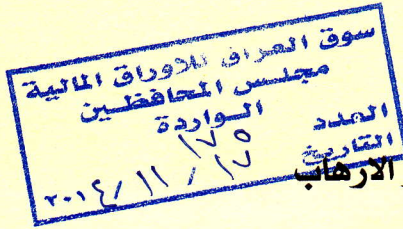 سوق العراق للاوراق المالية
مجلس المحافظين
الواردة
العدد ١٧٥
التاريخ ١٧ / ١١ / ٢٠١٤
الارهاب